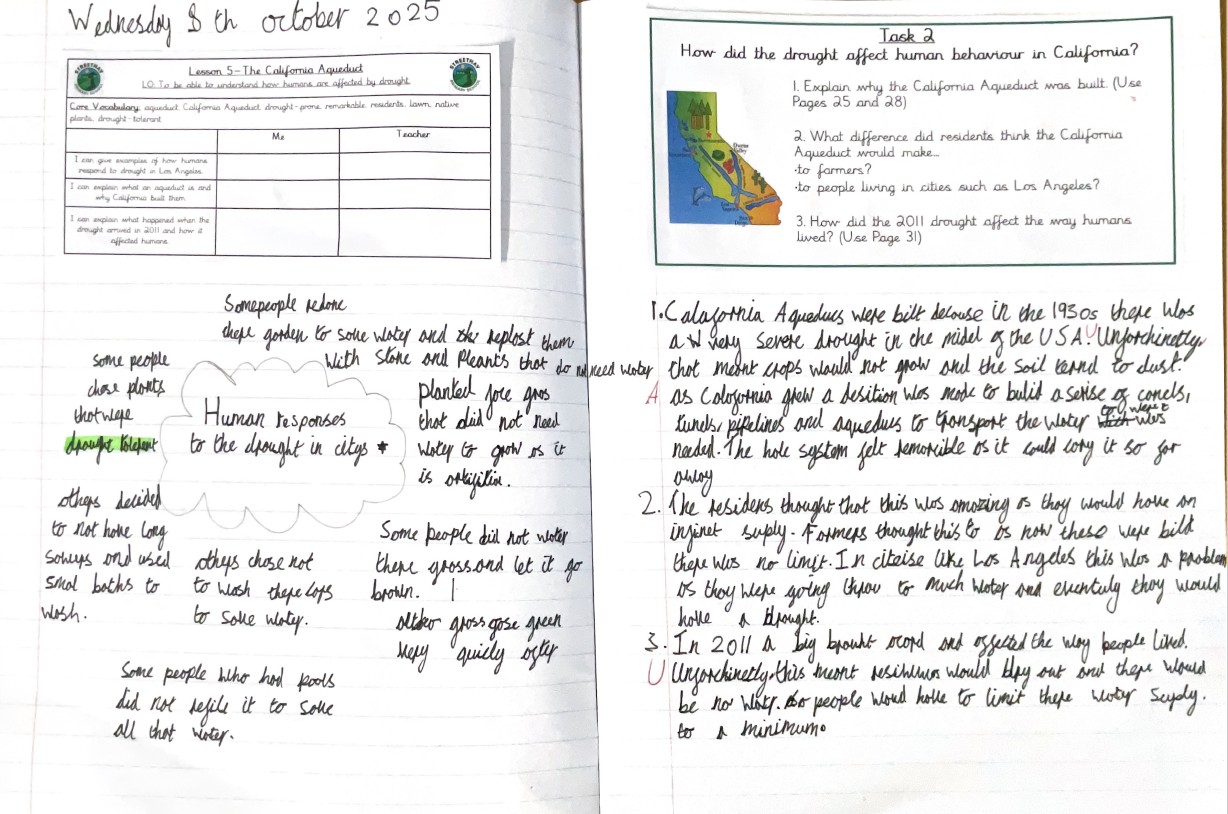 Wednesday 8th october 2025
STREETHAY
STREETHAY
Lesson 5 – The California Aqueduct
LO: To be able to understand how humans are affected by drought.
Core Vocabulary: aqueduct, California Aqueduct, drought-prone, remarkable, residents, lawn, native
plants, drought-tolerant
Me
Teacher
I can give examples of how humans
respond to drought in Los Angeles.
I can explain what an aqueduct is and
why California built them.
I can explain what happened when the
drought arrived in 2011 and how it
affected humans.
Somepeople redone
there gorden to save water and replost them
with stone and Pleants that do not need water
some people
chose plants
that were
drought tolerant
Human responses
to the drought in citys *
planted face gras
that did not need
water to grow as it
is artifitin.
others decided
to not have long
sowers and used
smal baths to
wash.
others chose not
to wash there cars
to save water.
Some people did not water
there grass and let it go
brown.
grass gose green
very quicly after
Some people who had pools
did not refile it to save
all that water.
Task 2
How did the drought affect human behaviour in California?
1. Explain why the California Aqueduct was built. (Use
Pages 25 and 28)
2. What difference did residents think the California
Aqueduct would make...
•to farmers?
•to people living in cities such as Los Angeles?
3. How did the 2011 drought affect the way humans
lived? (Use Page 31)
1. Calafornia Aqueducs were bilt becouse in the 1930s there was
a very severe drought in the midel of the USA. Unforchinetly
that meant crops would not grow and the soil ternd to dust.
A as Calofornia grew a desition was made to bulid a serise of canels,
tunels, pipelines and aqueducs to transport the water to were it was
needed. The hole system felt remarcible as it could cary it so far
away
2. The residens thought that this was amazing as thay would have an
infinet suply. Farmers thought this to as now these were bild
there was no limit. In citeise like Los Angeles this was a problem
as they were going throu to much water and eventuly they would
have a drought.
3. In 2011 a big brouht ocord and affected the way people lived.
U Unforchinetly, this meant would dry out and there would
be no water. so people woud have to limit there water suply.
to a minimum.